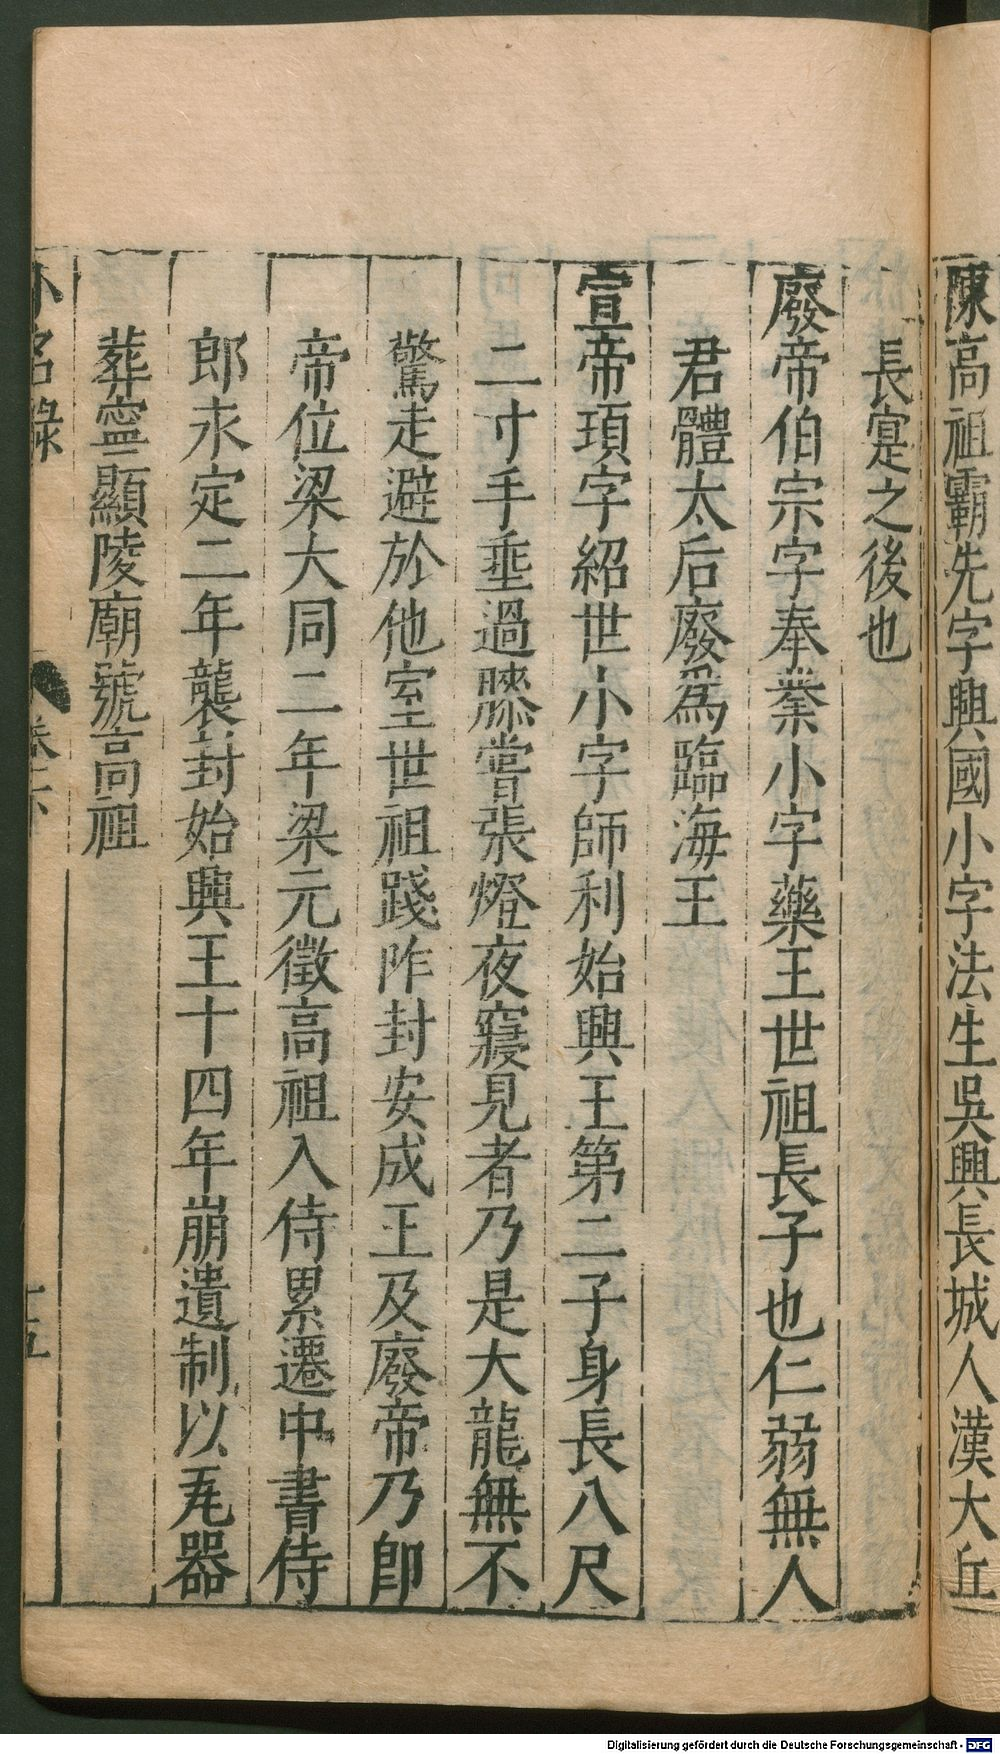 陳高祖霸先字興國小字法生吳興長城人漢大丘
長寔之後也
廢帝伯宗字奉業小字藥王世祖長子也仁弱無人
君體太后廢爲臨海王
宣帝頊字紹世小字師利始興王第二子身長八尺
二寸手垂過膝嘗張燈夜寢見者乃是大龍無不
驚走避於他室世祖踐阼封安成王及廢帝乃卽
帝位梁大同二年梁元徵高祖入侍累遷中書侍
郎永定二年襲封始興王十四年崩遺制以瓦器
葬寧顯陵廟號高祖
小名錄 卷下 十五
Digitalisierung gefördert durch die Deutsche Forschungsgemeinschaft - DFG